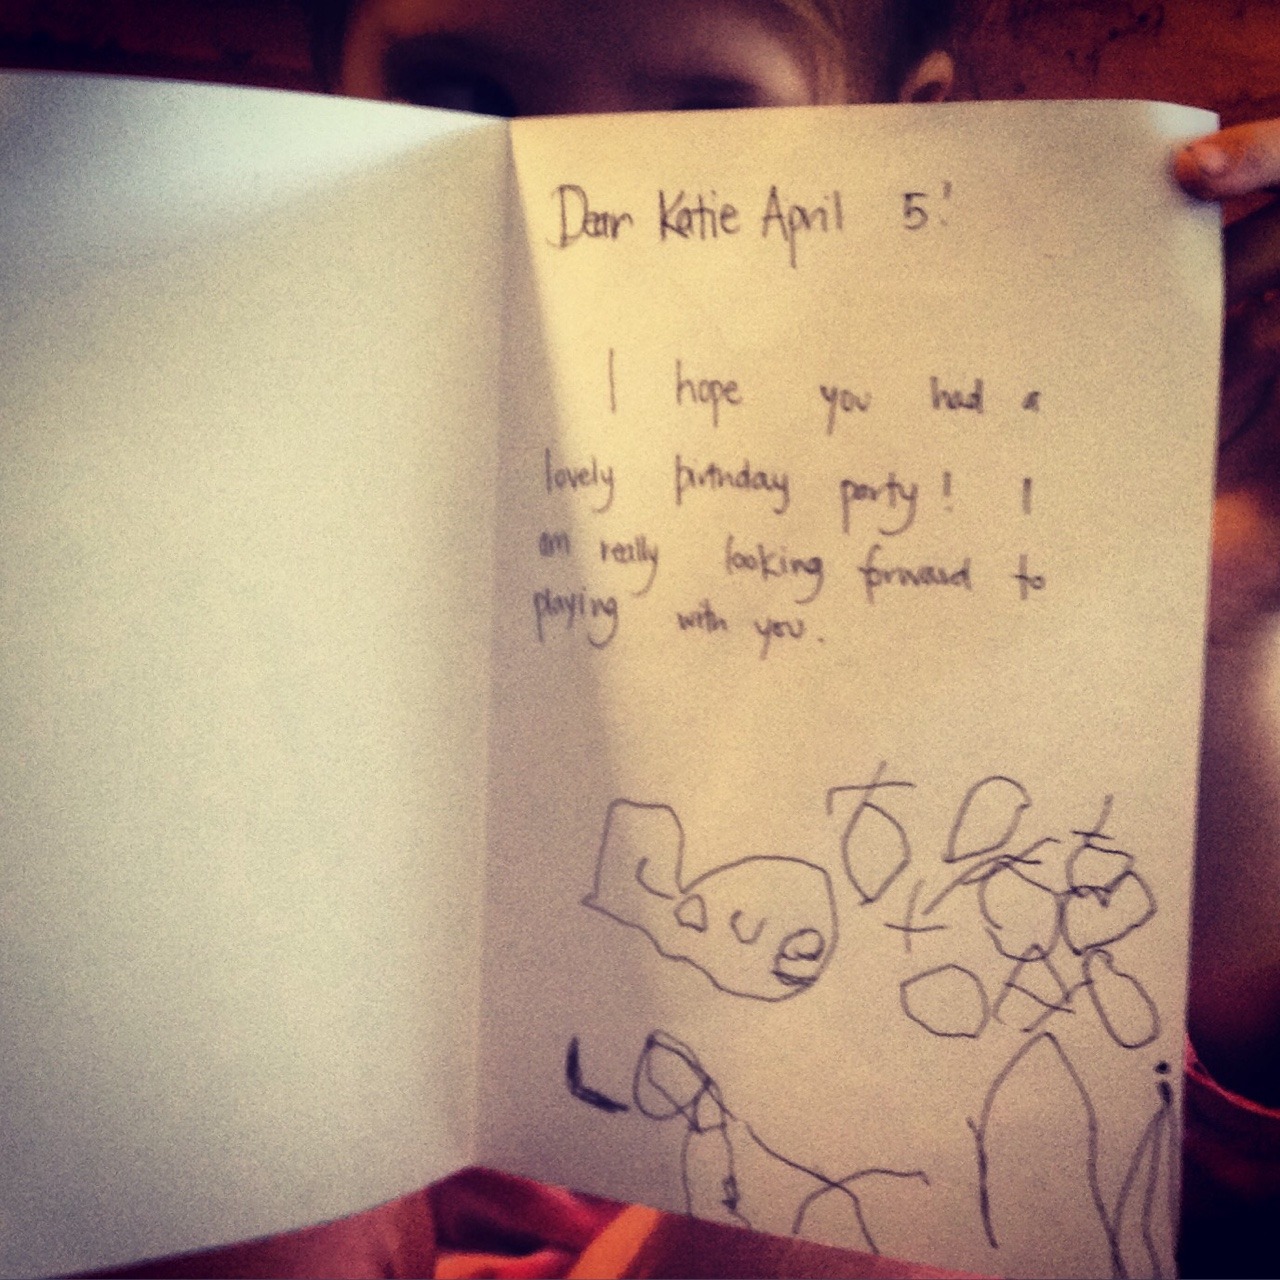 Dear Katie April 5!
I hope you had a
lovely birthday party! I
am really looking forward to
playing with you.
Love